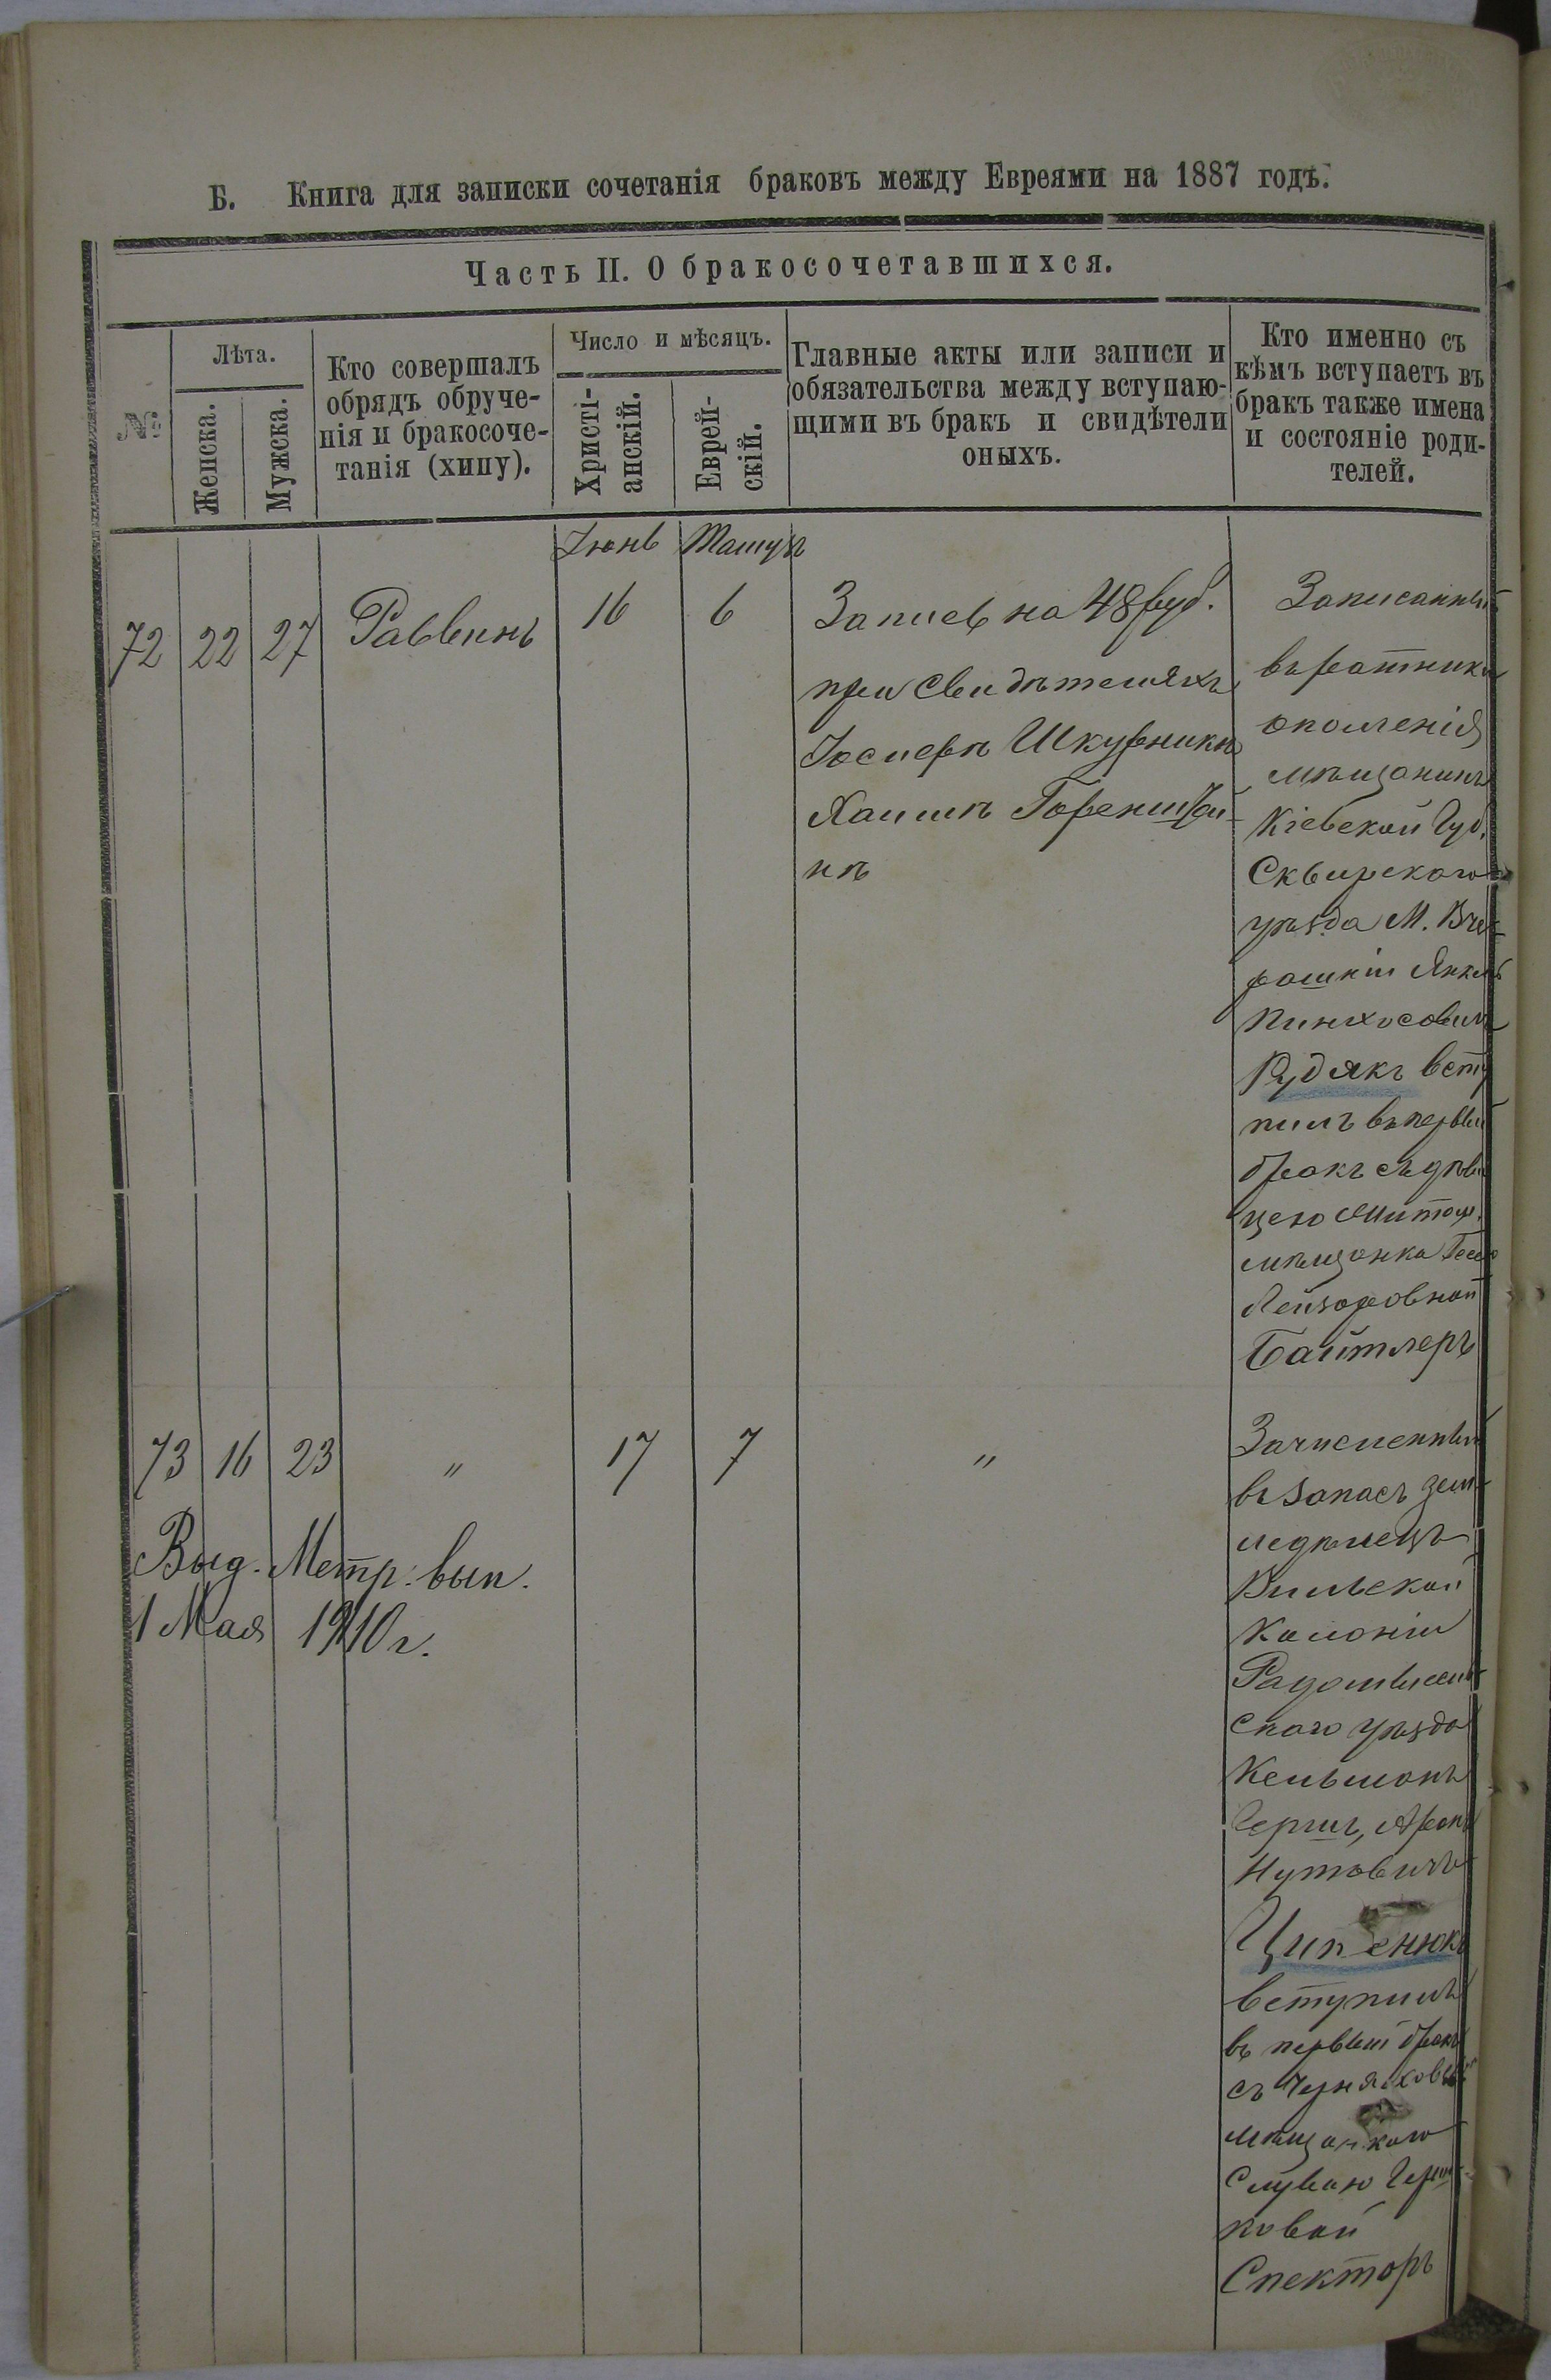 Б. Книга для записки сочетанія браковъ между Евреями на 1887 годъ.
Часть II. О бракосочетавшихся.
№
Лѣта.
Женска.
Мужска.
Кто совершалъ
обрядъ обруче-
нія и бракосоче-
танія (хипу).
Число и мѣсяцъ.
Христі-
анскій.
Еврей-
скій.
Главные акты или записи и
обязательства между вступаю-
щими въ бракъ и свидѣтели
оныхъ.
Кто именно съ
кѣмъ вступаетъ въ
бракъ также имена
и состояніе роди-
телей.
Іюнь
72 22 27 Раввинъ 16 6
Запись на 48 руб.
при свидѣтеляхъ
Іосифѣ Шкурникѣ
Хаимѣ Горенштей-
нѣ
Записанный
въ ратники
ополченія
мѣщанинъ
Кіевской Губ.
Сквирскаго
уѣзда М. Вче-
рашкіи Янкель
Пинхосовичъ
Рудякъ всту
пилъ въ первый
бракъ съ дѣви
цею Житом.
мѣщанка
Лейзоровной
Байтлеръ
73 16 23 " 17 7 "
Выд. Метр. вып.
1 Мая 1910 г.
Зачисленный
въ запасъ зем-
ледѣлецъ
Вильской
Колоніи
Радомысль
скаго уѣзда
Кельманъ
Гершъ, Аронъ
Нутовичъ
Ципенюкъ
вступилъ
въ первый бракъ
съ Черняховской
мѣщанкою
Герш-
ковой
Спекторъ